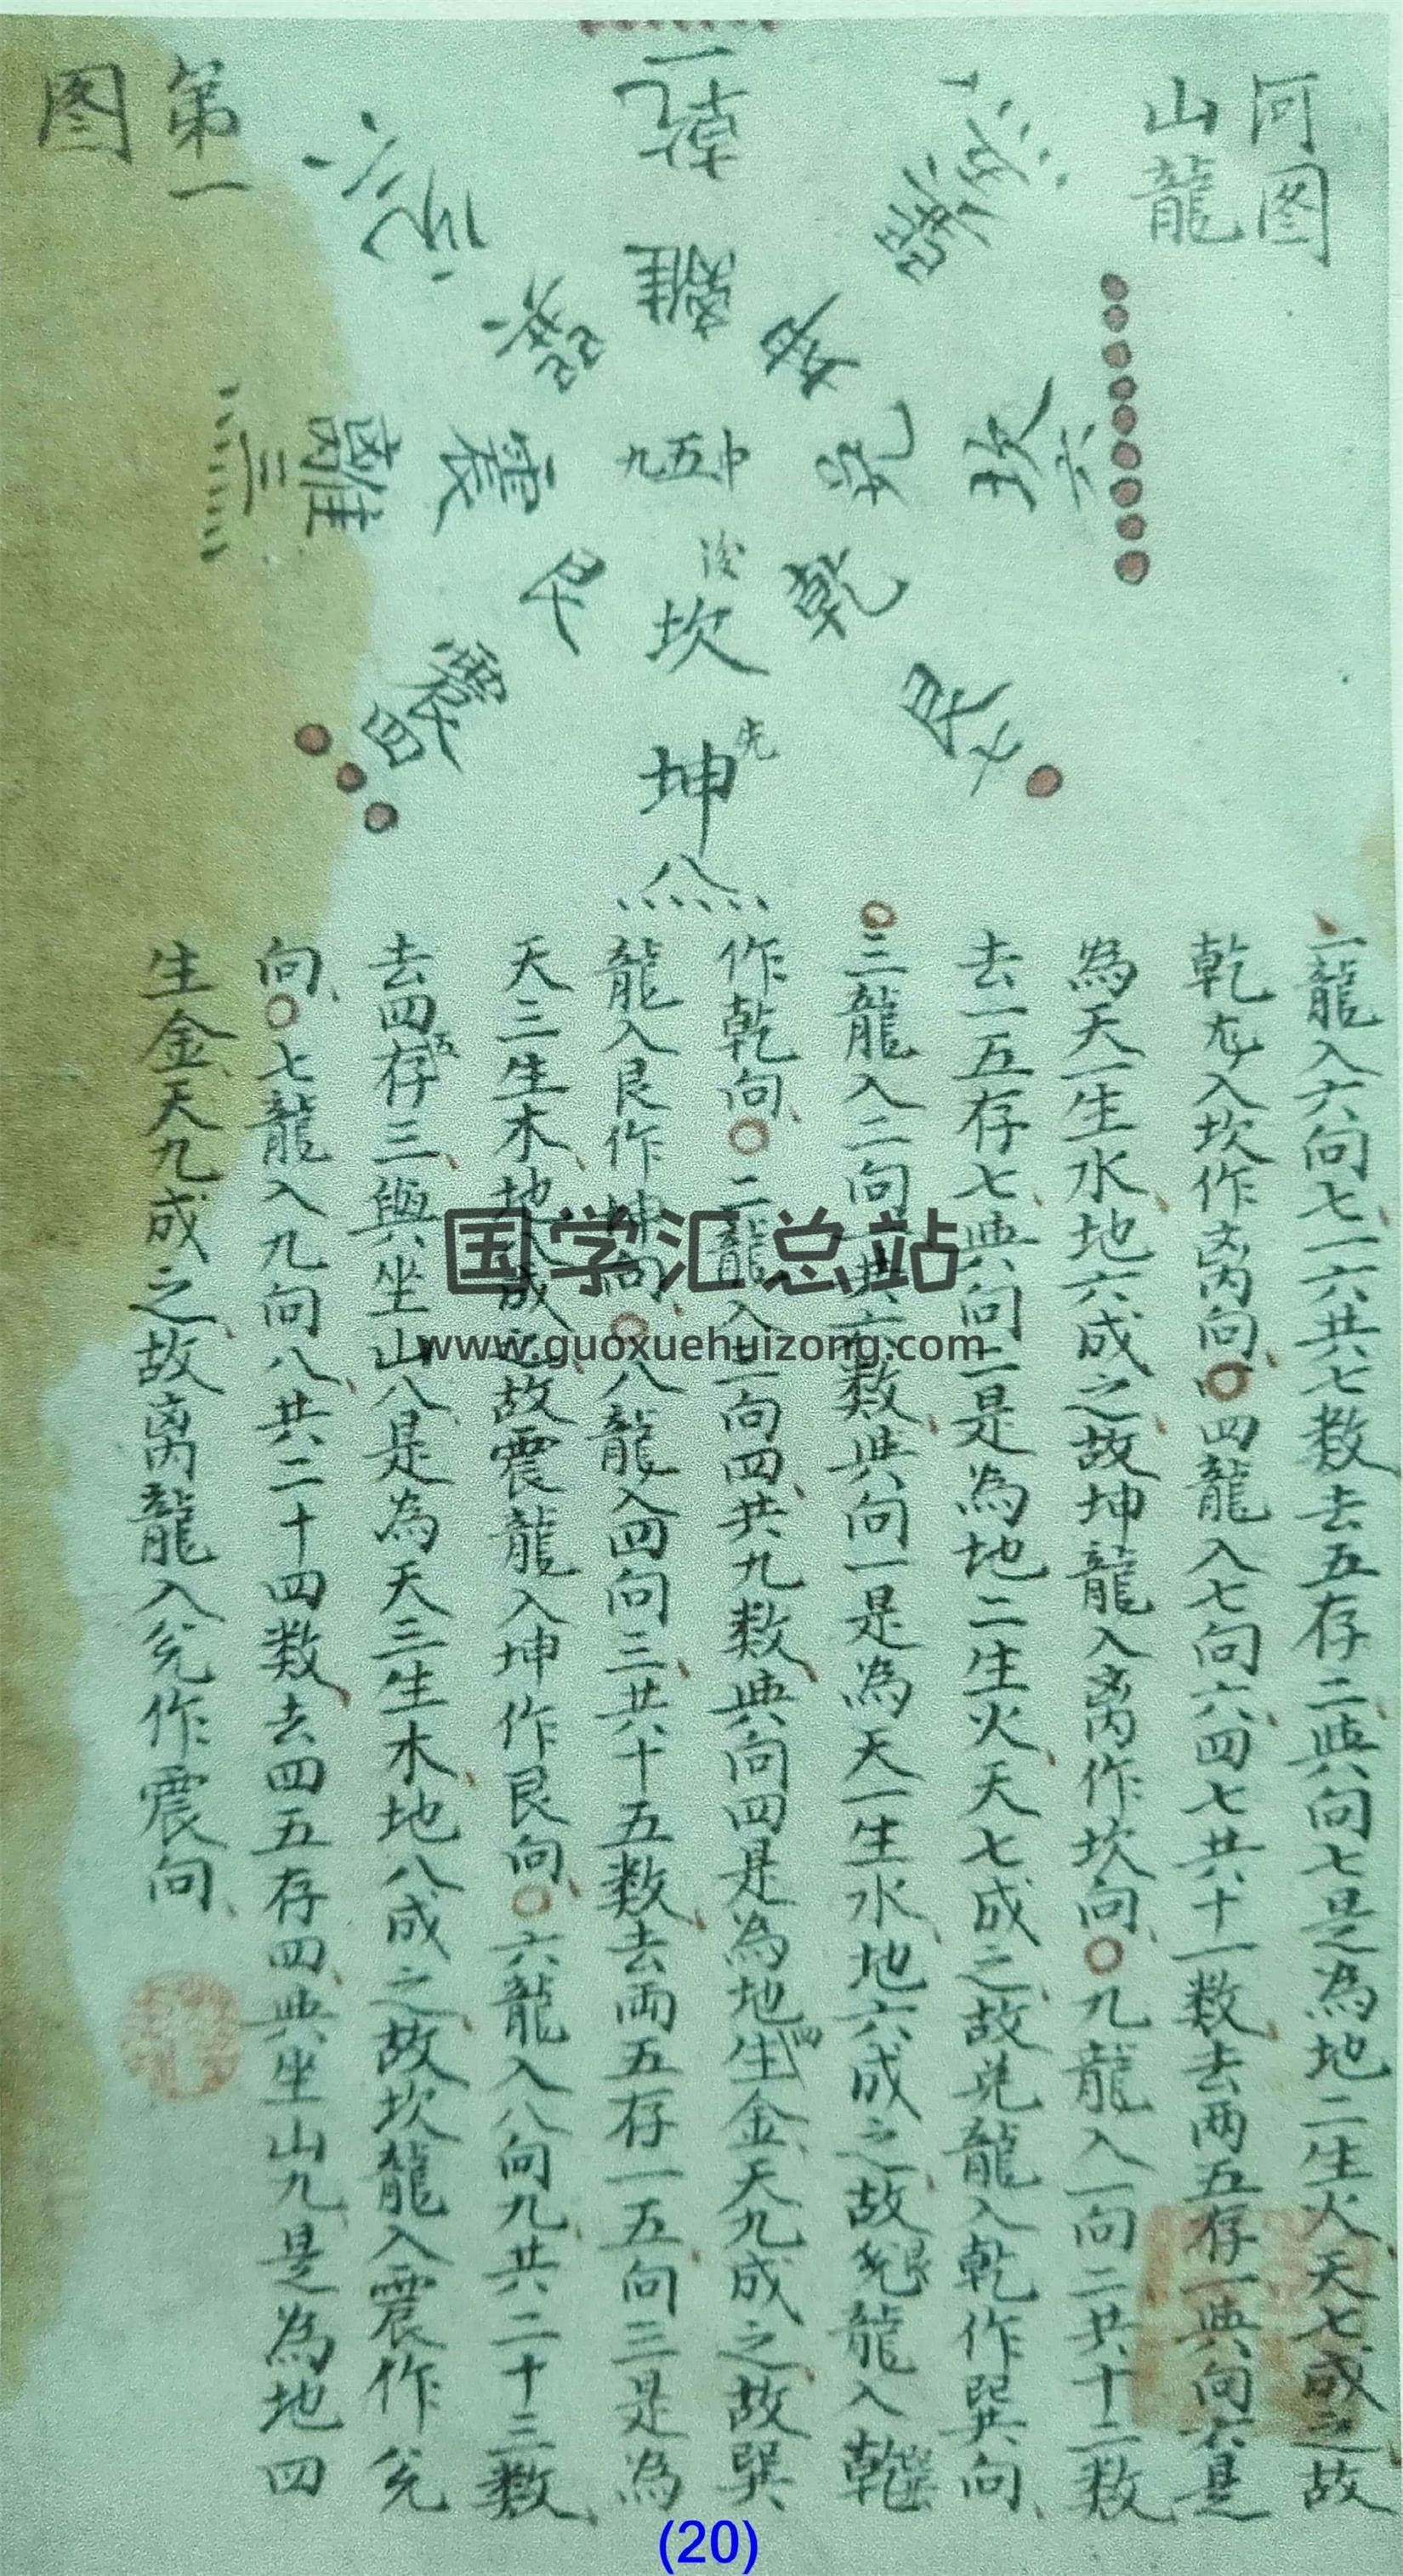 河图
山龍
第一
图
一
乾
兑
離
三
離
坤
巽
巽
兑
坎
六
震
中五九
後
坎
艮
乾
震
四
艮
七
先
坤
八
一龍入六向七一六共七数去五存二與向七是為地二生火天七成之故
乾龙入坎作离向四龍入七向六四七共十一数去两五存一與向六是
為天一生水地六成之故坤龍入离作坎向九龍入一向二共十二数
去一五存七與向二是為地二生火天七成之故兑龍入乾作巽向
三龍入二向一共六数與向一是為天一生水地六成之故艮兑龍入乾巽
作乾向二龍入三向四共九数與向四是為地四生金天九成之故巽
龍入艮作坤向八龍入四向三共十五数去两五存一五向三是為
天三生木地八成之故震龍入坤作艮向六龍入八向九共二十三数
去四五存三與坐山八是為天三生木地八成之故坎龍入震作兑
向七龍入九向八共二十四数去四五存四與坐山九是為地四
生金天九成之故离龍入兑作震向
国学汇总站
www.guoxuehuizong.com
(20)